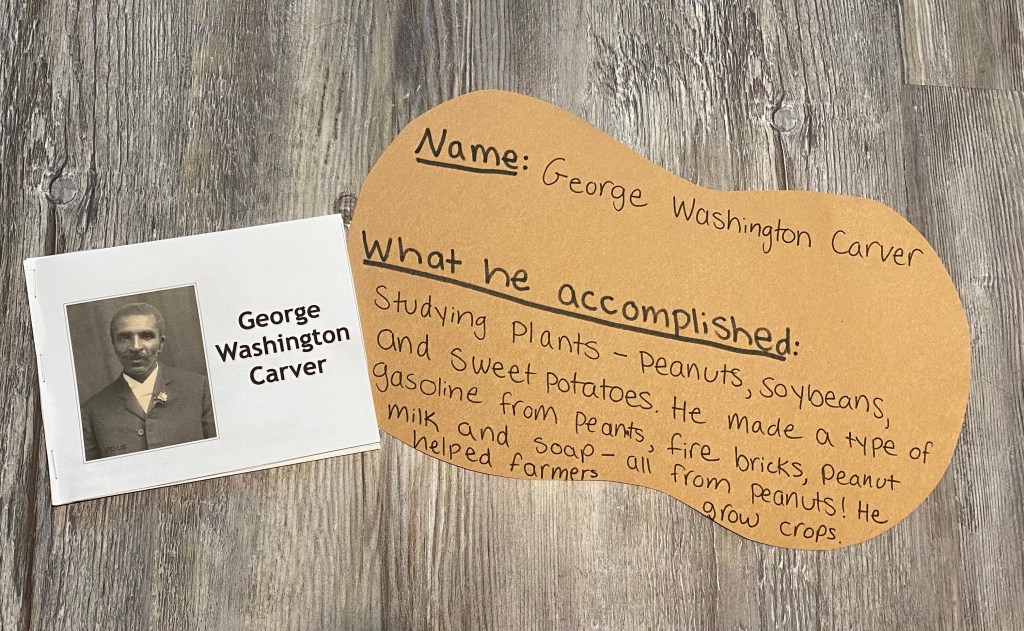 George
Washington
Carver
Name: George Washington Carver
What he accomplished:
Studying Plants - Peanuts, Soybeans,
and sweet potatoes. He made a type of
gasoline from peants, fire bricks, peanut
milk and soap - all from peanuts! He
helped farmers grow crops.